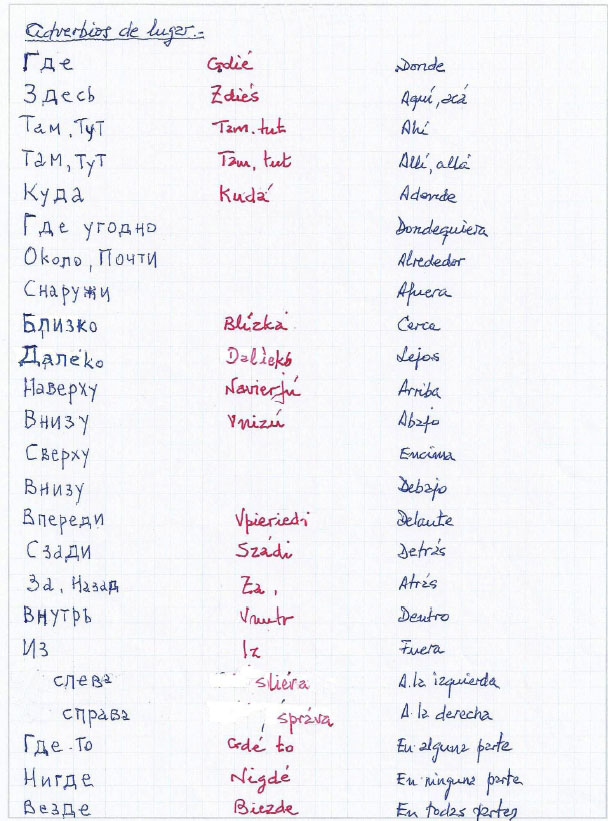 Adverbios de lugar.-
Где Gdié Donde
Здесь Zdiés Aquí, acá
Там, Тут Tam. tut Ahí
Там, Тут Tam, tut Allí, allá
Куда Kudá Adonde
Где угодно Dondequiera
Около, Почти Alrededor
Снаружи Afuera
Близко Blízka Cerca
Далеко Daliekó Lejos
Наверху Navierjú Arriba
Внизу Vnizú Abajo
Сверху Encima
Внизу Debajo
Впереди Vpieriedi Delante
Сзади Szádi Detrás
За, Назад Za, Atrás
Внутрь Vnutr Dentro
Из Iz Fuera
слева sliéva A la izquierda
справа správa A la derecha
Где-то Gdé to En alguna parte
Нигде Nigdé En ninguna parte
Везде Biezde En todas partes